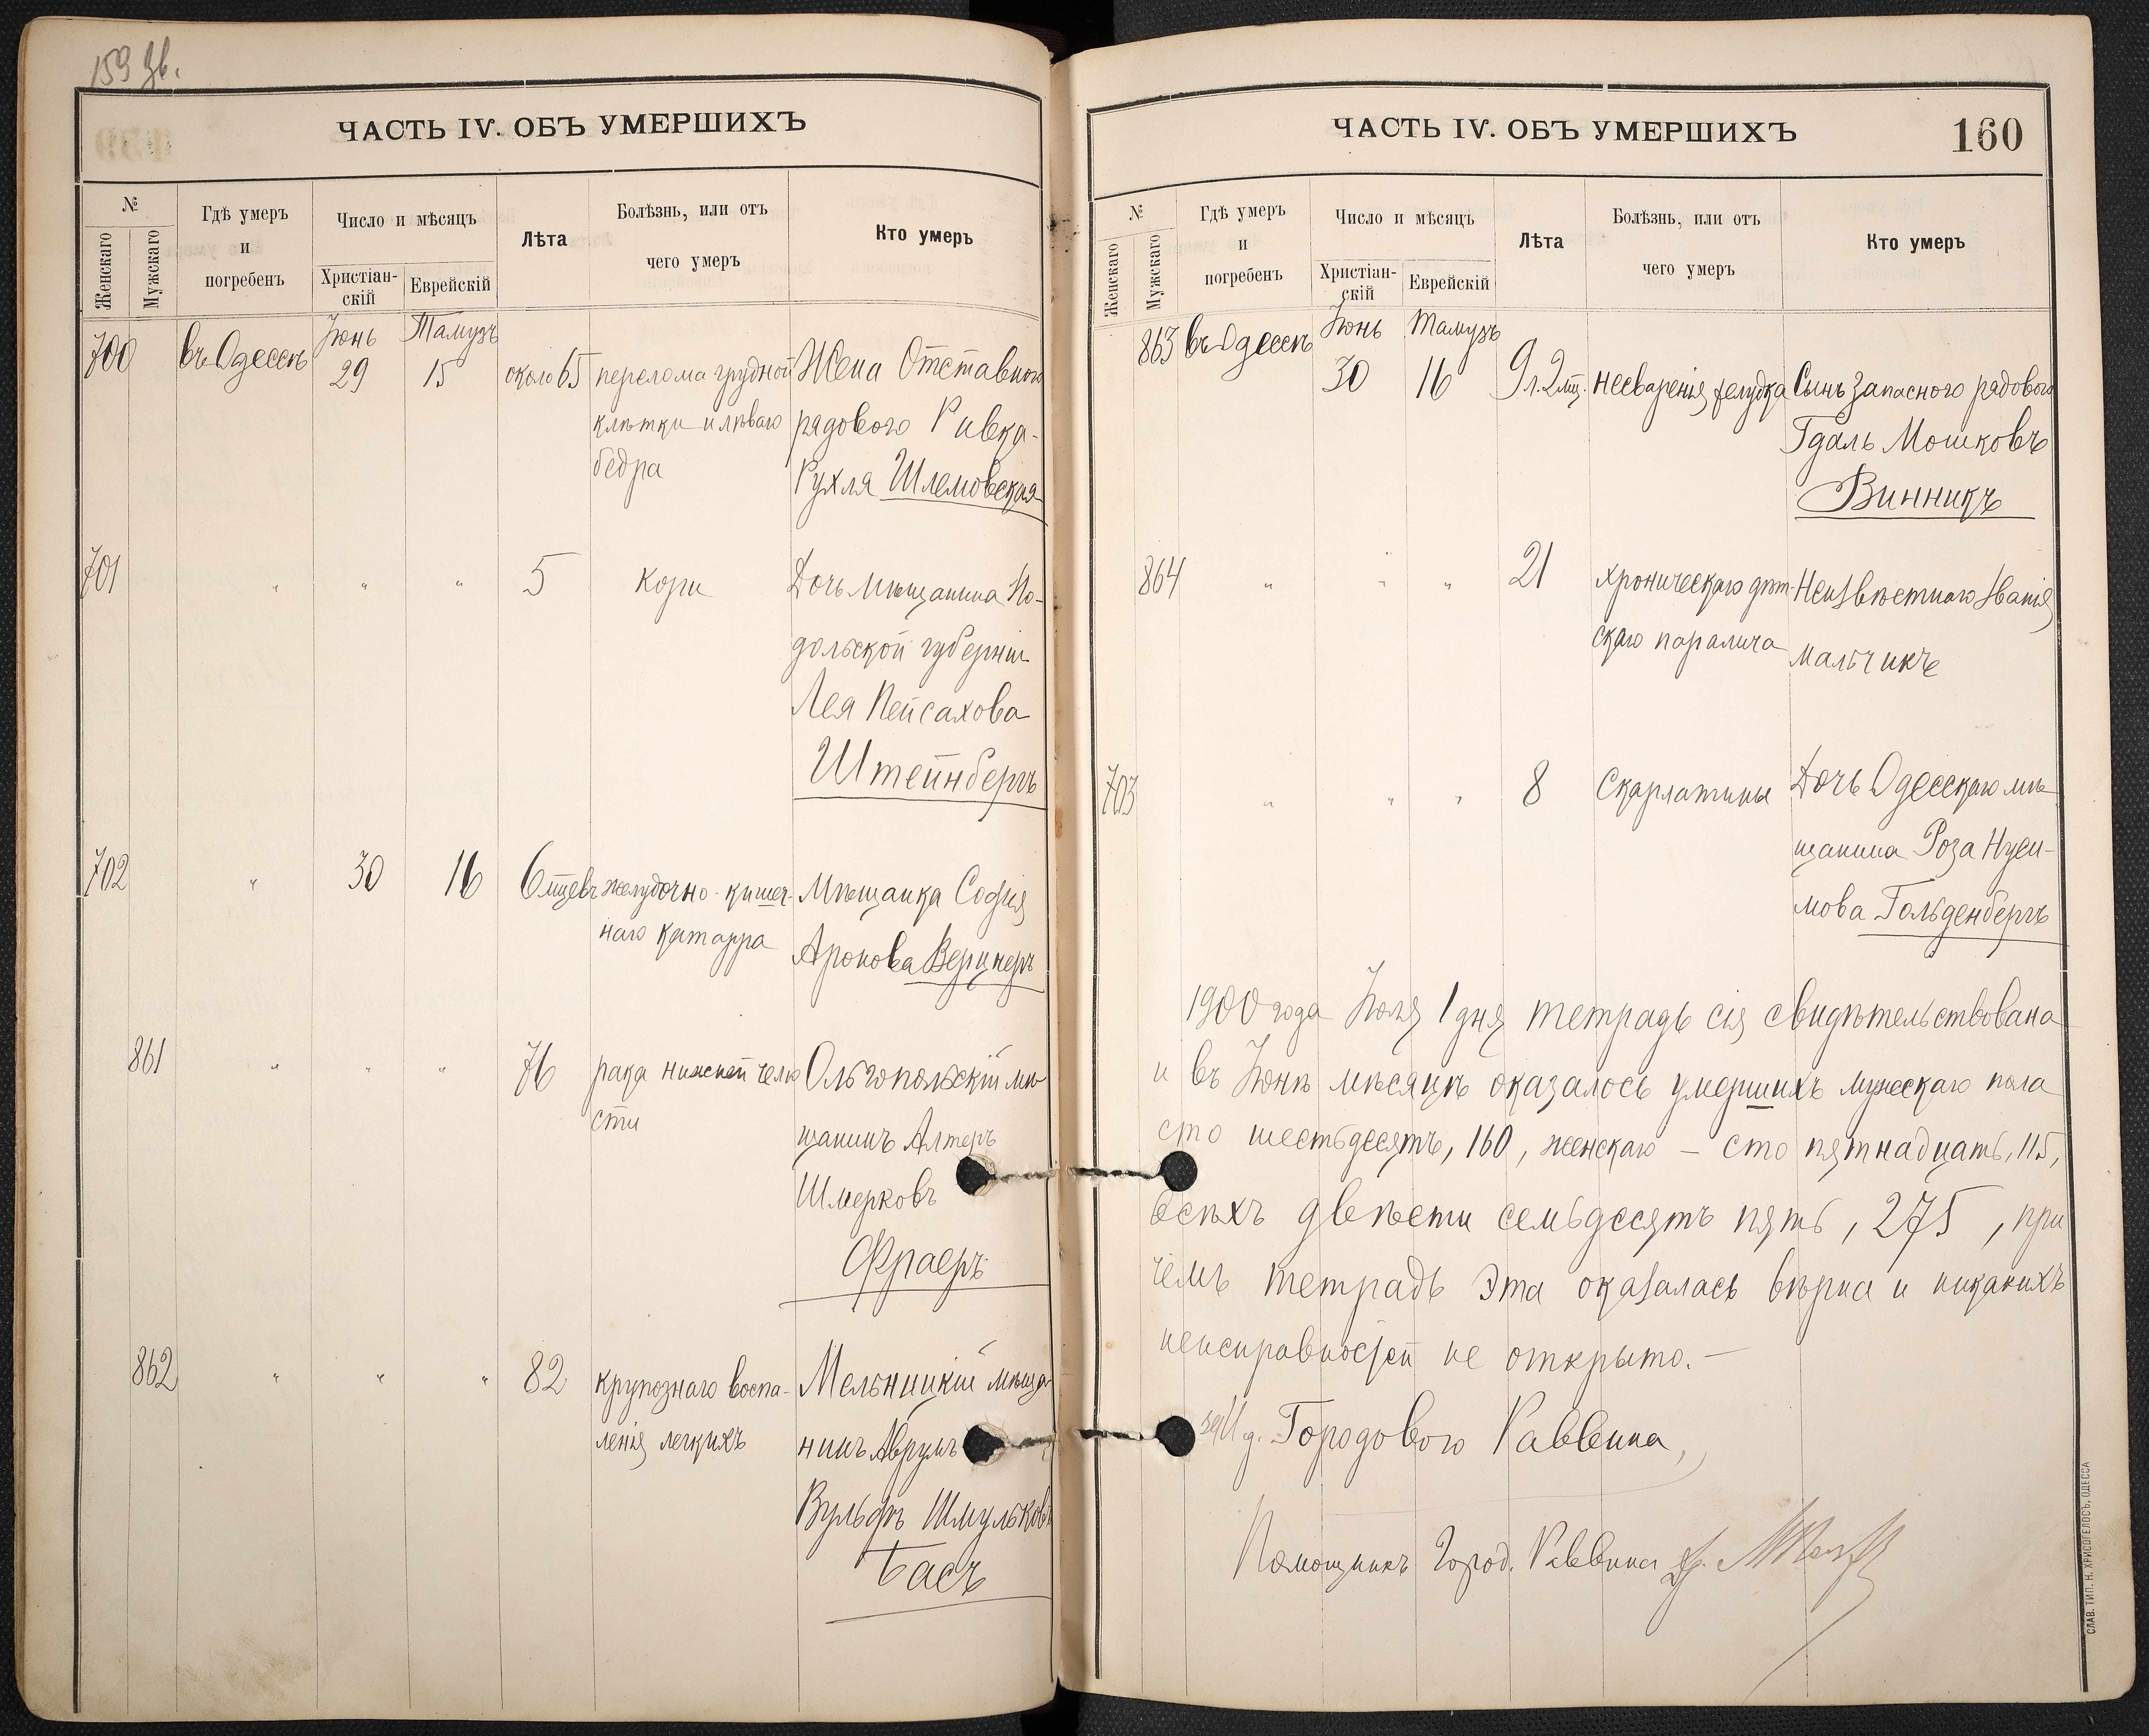 159 об.
ЧАСТЬ IV. ОБЪ УМЕРШИХЪ
№
Женскаго
Мужскаго
Гдѣ умеръ
и
погребенъ
Число и мѣсяцъ
Христіан-
скій
Еврейскій
Лѣта
Болѣзнь, или отъ
чего умеръ
Кто умеръ
700 въ Одессѣ Іюнь 29 Тамузъ 15 около 65 перелома грудной Жена Отставного
клѣтки и лѣваго рядового Ривка-
бедра Рухля Шлемовская
701 " " " 5 Кори Дочь мѣщанина По-
дольской губерніи
Лея Пейсахова
Штейнбергъ
702 " 30 16 6 мцевъ желудочно-кишеч- Мѣщанка Софія
наго катарра Аронова Верцнеръ
861 " " " 76 рака нижней челю Ольгопольскій мѣ
сти щанинъ Алтеръ
Шмерковъ
Фраеръ
862 " " " 82 крупознаго воспа- Мельницкій мѣща
ленія легкихъ нинъ Аврумъ
Вульфъ Шмульковъ
Басъ
ЧАСТЬ IV. ОБЪ УМЕРШИХЪ
160
№
Женскаго
Мужскаго
Гдѣ умеръ
и
погребенъ
Число и мѣсяцъ
Христіан-
скій
Еврейскій
Лѣта
Болѣзнь, или отъ
чего умеръ
Кто умеръ
863 въ Одессѣ Іюнь 30 Тамузъ 16 9 л. 2 мц. несваренія желудка Сынъ запасного рядового
Гдаль Мошковъ
Винникъ
864 " " " 21 хроническаго дѣт- Неизвѣстнаго званія
скаго паралича мальчикъ
703 " " " 8 Скарлатины Дочь Одесскаго мѣ
щанина Роза Нуси-
мова Гольденбергъ
1900 года Іюля 1 дня тетрадь сія свидѣтельствована
и въ Іюнѣ мѣсяцѣ оказалось умершихъ мужескаго пола
сто шестьдесятъ, 160, женскаго – сто пятнадцать, 115,
всѣхъ двѣсти семьдесятъ пять, 275, при
чемъ тетрадь эта оказалась вѣрна и никакихъ
неисправностей не открыто. –
И. д. Городового Раввина,
Помощникъ Город. Раввина
СЛАВ. ТИП. Н. ХРИСОГЕЛОСЪ, ОДЕССА